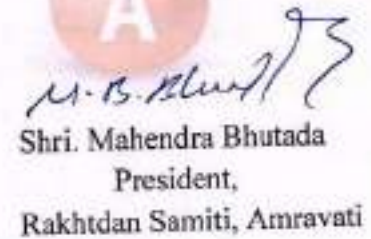 A
M. B. Bhutada
Shri. Mahendra Bhutada
President,
Rakhtdan Samiti, Amravati